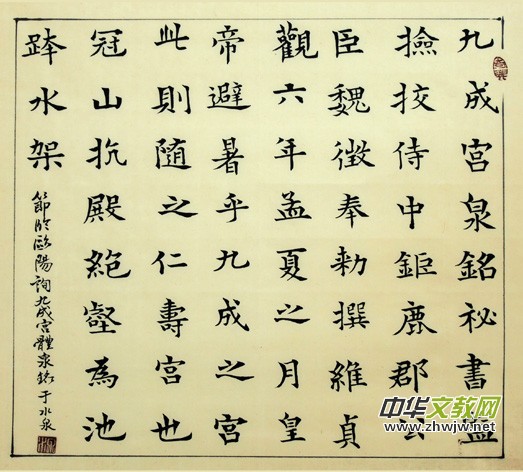 九成宫泉銘祕書監
撿挍侍中鉅鹿郡公
臣魏徴奉勅撰維貞
觀六年孟夏之月皇
帝避暑乎九成之宮
此則随之仁壽宮也
冠山抗殿絶壑為池
跨水架
節臨歐陽詢九成宮醴泉銘于水泉
中华文教网
www.zhwjw.net